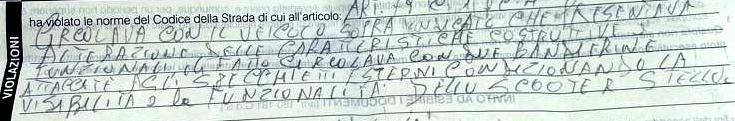 ha violato le norme del Codice della Strada di cui all'articolo:
CIRCOLAVA CON IL VEICOLO SOPRA INDICATO CHE PRESENTAVA
ALTERAZIONE DELLE CARATTERISTICHE COSTRUTTIVE E
FUNZIONALI IL FATTO CIRCOLAVA CON DUE BANDIERINE
ATTACCATE AGLI SPECCHIETTI ESTERNI CONDIZIONANDO LA
VISIBILITÀ O LA FUNZIONALITÀ DELLO SCOOTER STELLO.
VIOLAZIONI